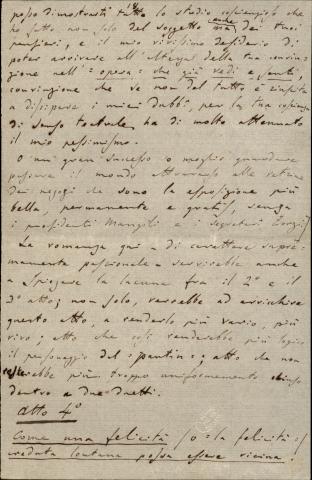 posso dimostrarti tutto lo studio coscienzioso che
ho fatto, non solo del soggetto ma anche dei tuoi
pensieri, e il mio vivissimo desiderio di
poter arrivare all'altezza della tua convin-
zione nell'=opera= che già vedi e senti,
convinzione che se non del tutto è riuscita
a dissipare i miei dubbi, per la tua coscienza
di senso teatrale, ha di molto attenuato
il mio pessimismo.
O un gran successo o meglio guardare
passare il mondo attraverso alle vetrine
dei negozi che sono la esposizione più
bella, permanente e gratis, senza
i presidenti Mangili e i segretari
La romanza qui = di carattere supre-
mamente passionale = servirebbe anche
a spiegare la lacuna fra il 2º e il
3º atto; non solo, varrebbe ad arricchire
questo atto, a renderlo più vario, più
vivo; atto che così renderebbe più logico
il personaggio del =pantin=; atto che non
sarebbe più troppo uniformemente chiuso
dentro a due duetti.
Atto 4º
Come una felicità (o =la felicità=)
creduta lontana possa essere vicina.